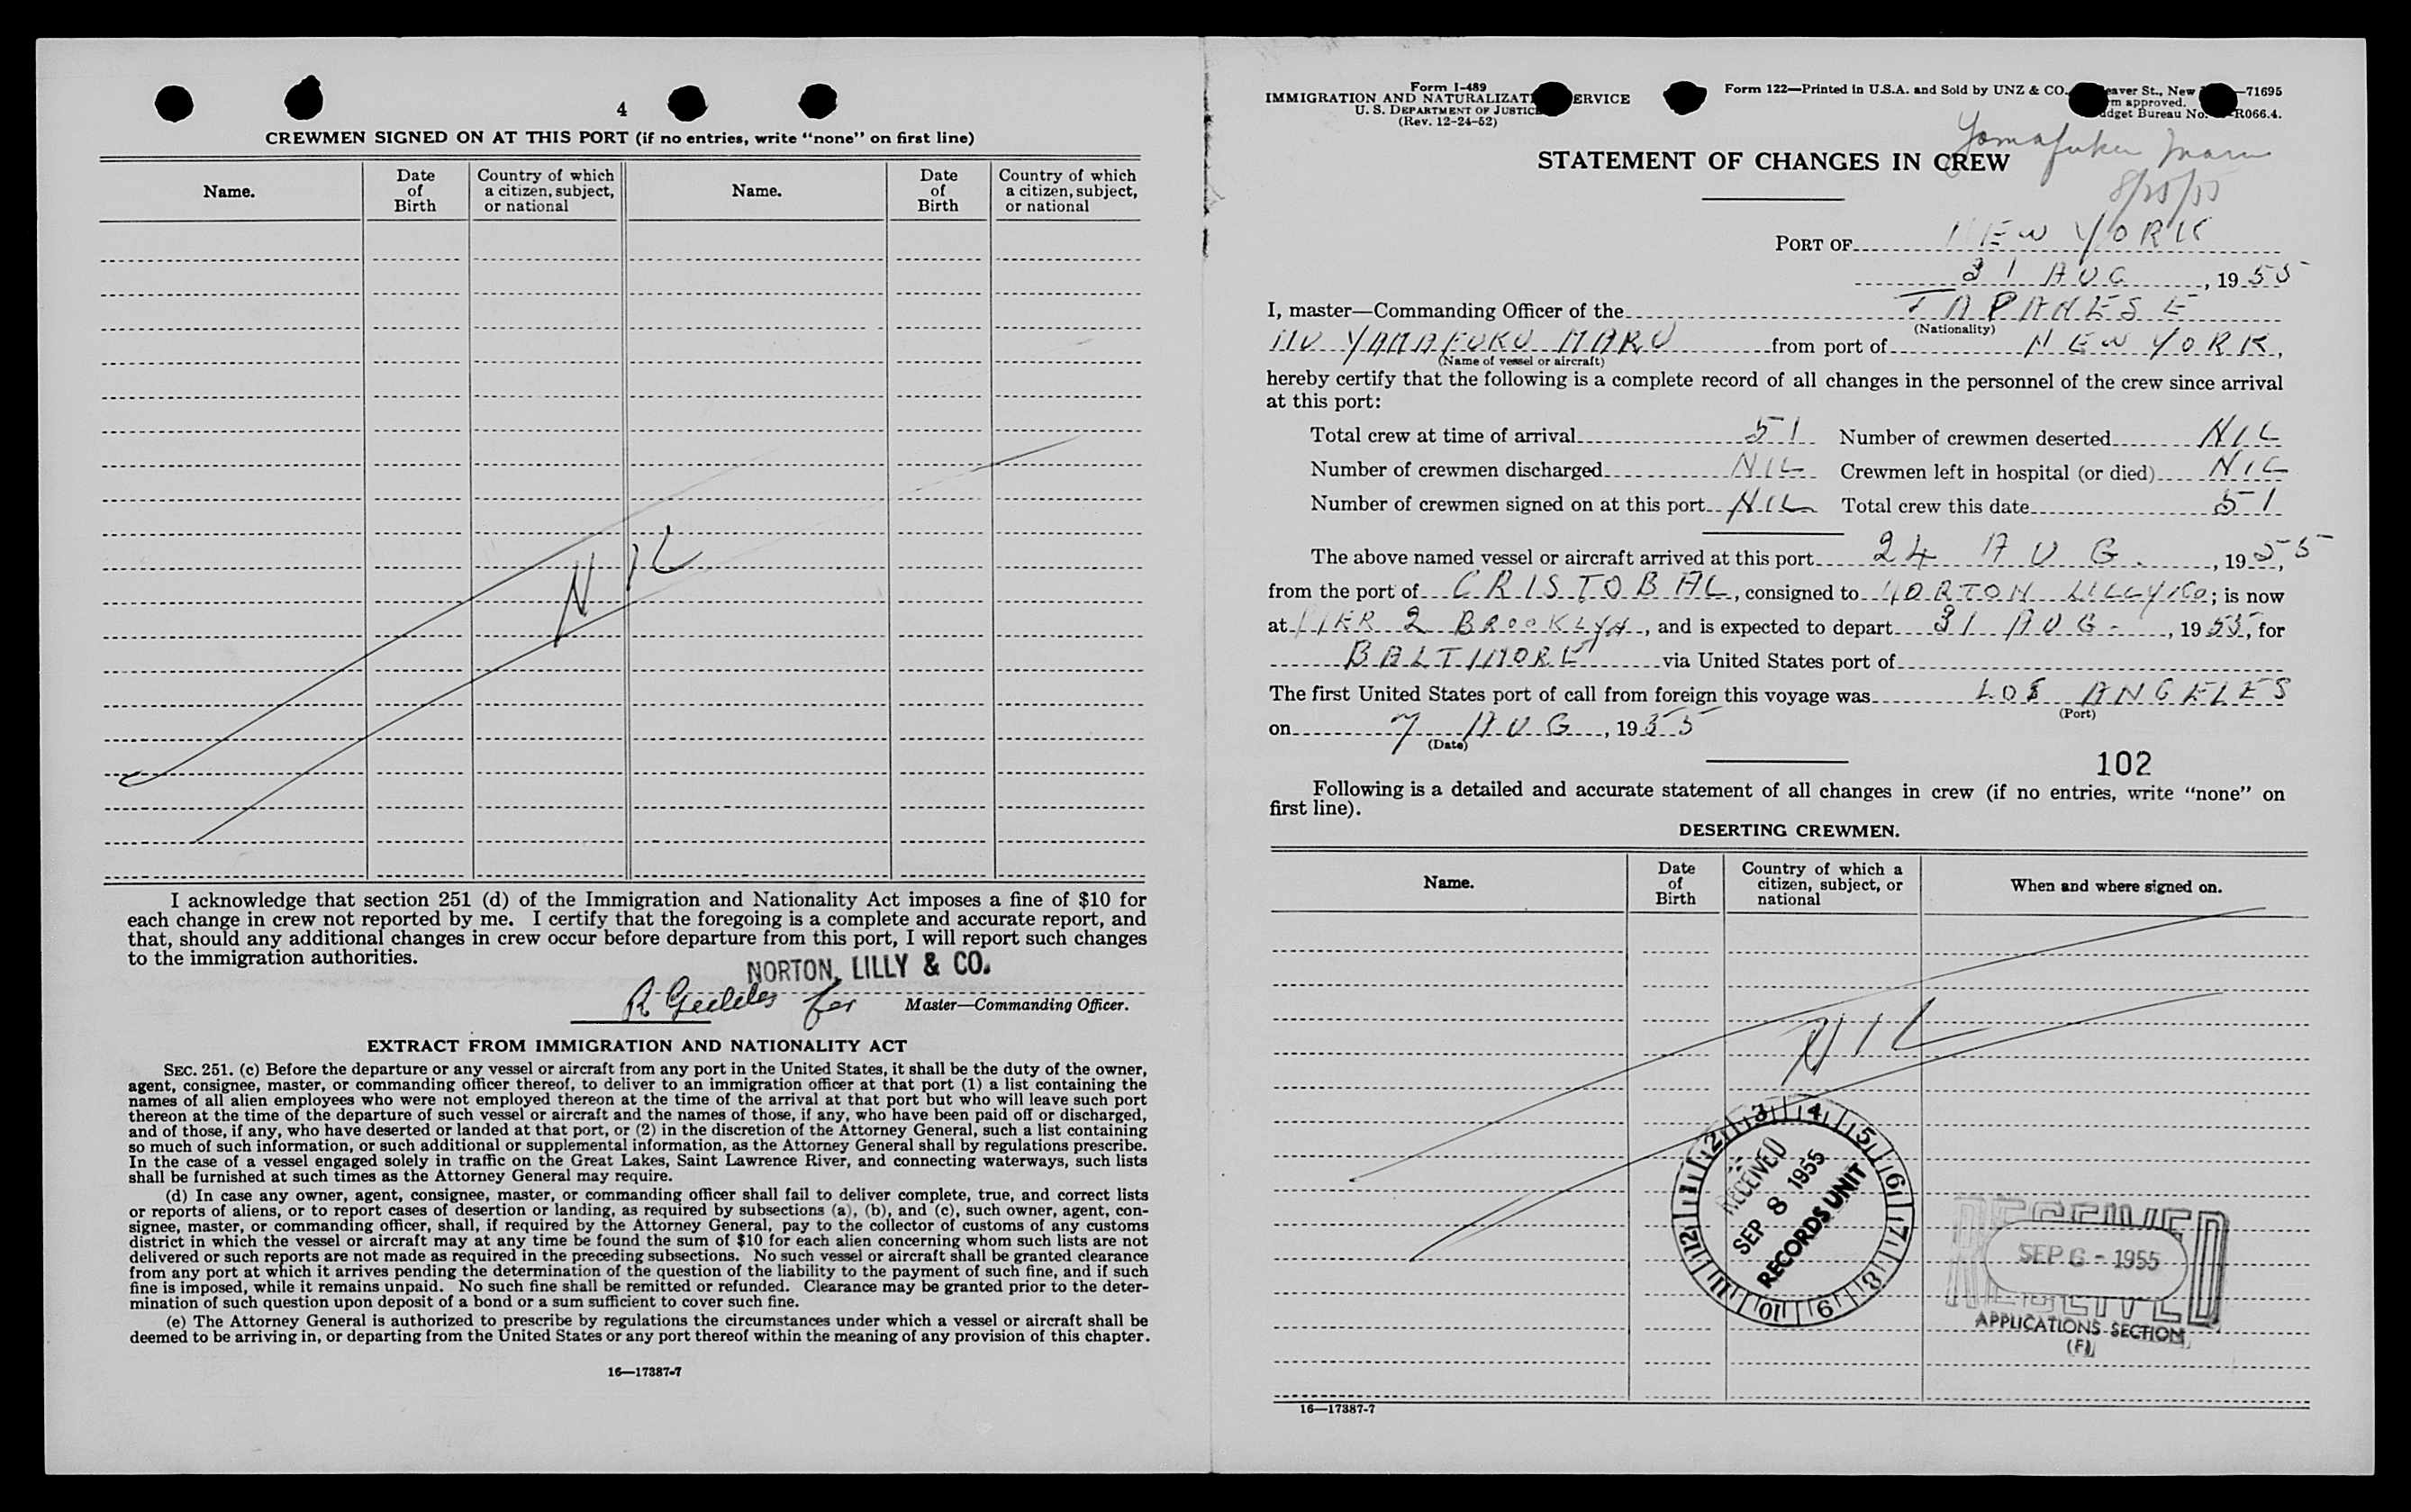 4
CREWMEN SIGNED ON AT THIS PORT (if no entries, write "none" on first line)
Name.
Date of Birth
Country of which a citizen, subject, or national
Name.
Date of Birth
Country of which a citizen, subject, or national
NIL
I acknowledge that section 251 (d) of the Immigration and Nationality Act imposes a fine of $10 for
each change in crew not reported by me. I certify that the foregoing is a complete and accurate report, and
that, should any additional changes in crew occur before departure from this port, I will report such changes
to the immigration authorities.
NORTON, LILLY & CO.
R Geddes for
Master—Commanding Officer.
EXTRACT FROM IMMIGRATION AND NATIONALITY ACT
SEC. 251. (c) Before the departure or any vessel or aircraft from any port in the United States, it shall be the duty of the owner,
agent, consignee, master, or commanding officer thereof, to deliver to an immigration officer at that port (1) a list containing the
names of all alien employees who were not employed thereon at the time of the arrival at that port but who will leave such port
thereon at the time of the departure of such vessel or aircraft and the names of those, if any, who have been paid off or discharged,
and of those, if any, who have deserted or landed at that port, or (2) in the discretion of the Attorney General, such a list containing
so much of such information, or such additional or supplemental information, as the Attorney General shall by regulations prescribe.
In the case of a vessel engaged solely in traffic on the Great Lakes, Saint Lawrence River, and connecting waterways, such lists
shall be furnished at such times as the Attorney General may require.
(d) In case any owner, agent, consignee, master, or commanding officer shall fail to deliver complete, true, and correct lists
or reports of aliens, or to report cases of desertion or landing, as required by subsections (a), (b), and (c), such owner, agent, con-
signee, master, or commanding officer, shall, if required by the Attorney General, pay to the collector of customs of any customs
district in which the vessel or aircraft may at any time be found the sum of $10 for each alien concerning whom such lists are not
delivered or such reports are not made as required in the preceding subsections. No such vessel or aircraft shall be granted clearance
from any port at which it arrives pending the determination of the question of the liability to the payment of such fine, and if such
fine is imposed, while it remains unpaid. No such fine shall be remitted or refunded. Clearance may be granted prior to the deter-
mination of such question upon deposit of a bond or a sum sufficient to cover such fine.
(e) The Attorney General is authorized to prescribe by regulations the circumstances under which a vessel or aircraft shall be
deemed to be arriving in, or departing from the United States or any port thereof within the meaning of any provision of this chapter.
16—17387-7
Form I-489
IMMIGRATION AND NATURALIZAT ERVICE
U. S. DEPARTMENT OF JUSTIC
(Rev. 12-24-52)
Form 122—Printed in U.S.A. and Sold by UNZ & CO. eaver St., New —71695
rm approved.
udget Bureau No. R066.4.
Yamafuku Maru
8/25/55
STATEMENT OF CHANGES IN CREW
PORT OF NEW YORK
31 AUG, 1955
I, master—Commanding Officer of the JAPANESE
(Nationality)
MV YAMAFUKU MARU from port of NEW YORK,
(Name of vessel or aircraft)
hereby certify that the following is a complete record of all changes in the personnel of the crew since arrival
at this port:
Total crew at time of arrival 51 Number of crewmen deserted NIL
Number of crewmen discharged NIL Crewmen left in hospital (or died) NIL
Number of crewmen signed on at this port NIL Total crew this date 51
The above named vessel or aircraft arrived at this port 24 AUG., 1955,
from the port of CRISTOBAL, consigned to NORTON LILLY & Co; is now
at PIER 2 BROOKLYN, and is expected to depart 31 AUG., 1955, for
BALTIMORE via United States port of
The first United States port of call from foreign this voyage was LOS ANGELES
(Port)
on 7 AUG, 1955
(Date)
102
Following is a detailed and accurate statement of all changes in crew (if no entries, write "none" on
first line).
DESERTING CREWMEN.
Name.
Date of Birth
Country of which a citizen, subject, or national
When and where signed on.
NIL
1 2 3 4 5 6 7 8 9 10 11 12
RECEIVED
SEP 8 1955
RECORDS UNIT
RECEIVED
SEP 6 - 1955
RECEIVED
APPLICATIONS SECTION
(F)
16—17387-7